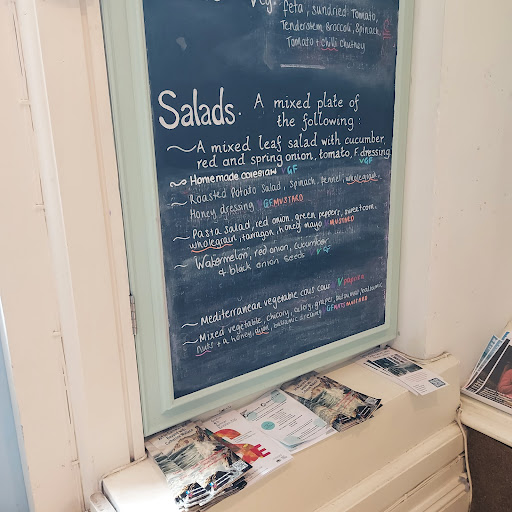 Vg.
feta, sundried Tomato,
Tenderstem Broccoli, Spinach,
Tomato + Chilli Chutney
Salads. A mixed plate of
the following:
~ A mixed leaf salad with cucumber,
red and spring onion, tomato, F.dressing
VGF
~ Homemade coleslaw GF
~ Roasted Potato Salad, spinach, fennel, wholegrain,
Honey dressing GF MUSTARD
~ Pasta salad, red onion, green peppers, sweetcorn,
wholegrain, tarragon, honey mayo MUSTARD
~ Watermelon, red onion, cucumber
& black onion seeds VGF
~ Mediterranean vegetable cous cous V
~ Mixed vegetable, chicory, celery, grapes, balsamic
nuts + a honey, dijon, balsamic dressing GF NUTS MUSTARD